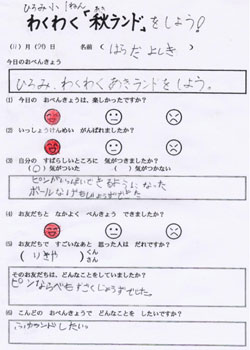 ひろみ小 1ねん
わくわく「秋ランド」をしよう!
(11)月(20)日 名前(はらだ よしき)
今日のおべんきょう
ひろみ、わくわくあきランドをしよう。
(1) 今日の おべんきょうは、楽しかったですか?
(2) いっしょうけんめい がんばれましたか?
(3) 自分の すばらしいところに 気がつきましたか?
(○)気がついた ( )気がつかなかった
ピンがいっぱいできるようになった
ボールなげもじょうずでした
(4) お友だちと なかよく べんきょう できましたか?
(5) お友だちで すごいなあと 思った人は だれですか?
(りきや)くん さん
そのお友だちは、どんなことをしていましたか?
ピンならべもすごくじょうずでした。
(6) こんどの おべんきょうで どんなことを したいですか?